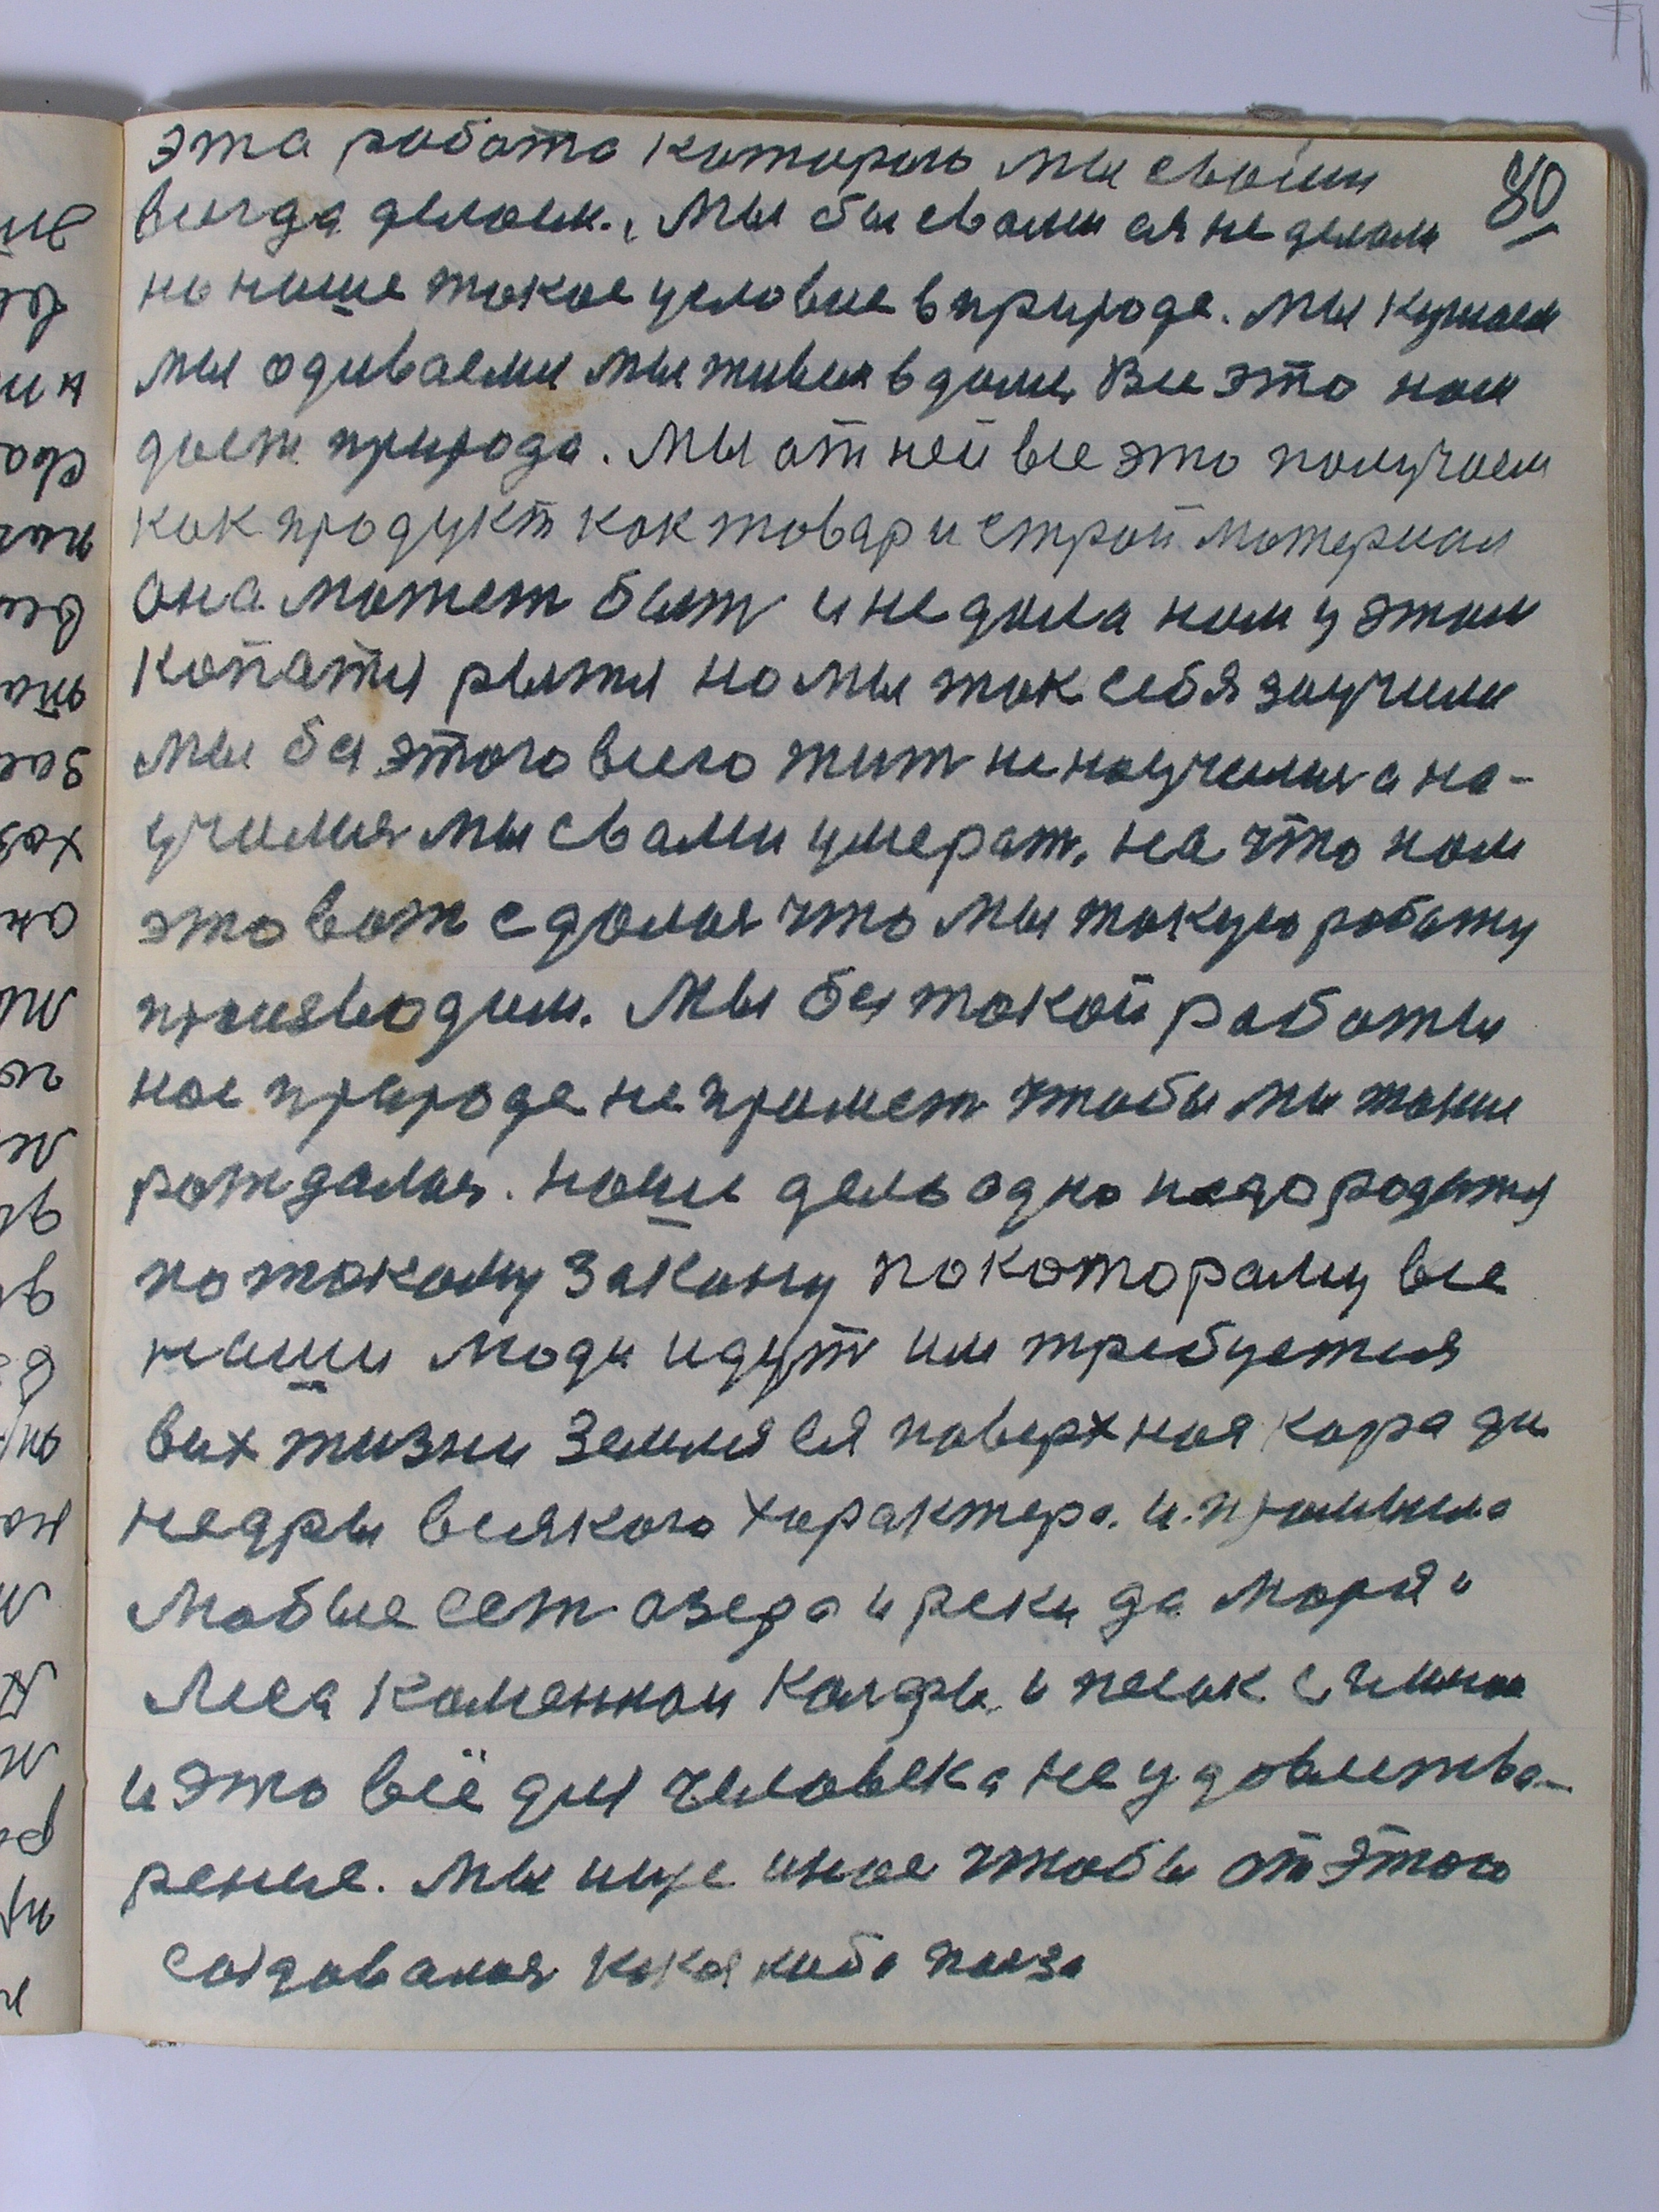 эта работа которою мы свами
80
всегда делаем., Мы бы свами ея не делали
но наше такое условие в природе. мы кушаем
мы одиваеми мы живем в доме, Все это нам
дает природа. Мы от ней все это получаем
как продукт как товар и строй материал
она может быт и не дала нам у этом
копатся рытся но мы так себя заучили
мы без этого всего жит не научился а на-
учился мы свами умерат, на что нам
это вот сдался что мы такую работу
производим. Мы без такой работы
нас природа не примет чтобы мы такие
рождался. наши дело одно надо родится
по такому закону по которому все
наши люди идут им требуется
в их жизни земля ея поверхная кора да
недры всякого характера. и
любые ест озера и реки да моря и
леса каменнаи и песак
и это всё для человека не удовлетва-
рение. мы ище иное чтобы от этого
создавался какая либо